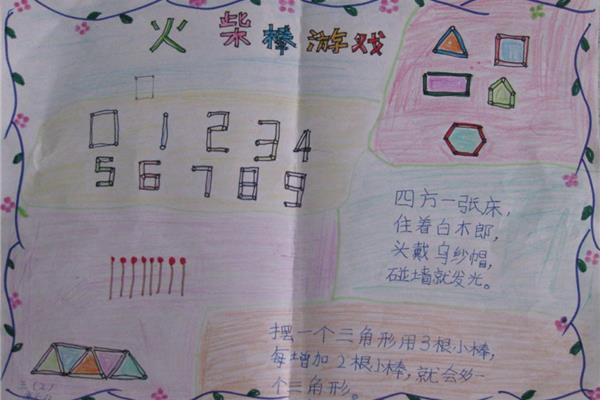 火柴棒游戏
0 1 2 3 4
5 6 7 8 9
四方一张床，
住着白木郎，
头戴乌纱帽，
碰墙就发光。
摆一个三角形用3根小棒，
每增加2根小棒，就会多一
个三角形。
三（2）